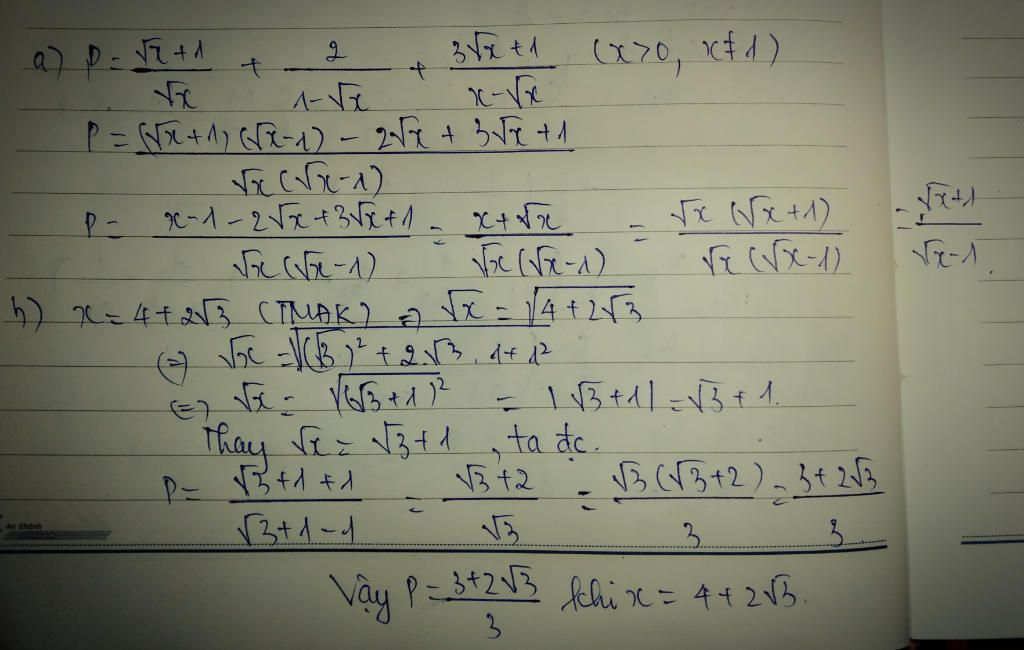 a) P = (√x + 1)/√x + 2/(1 - √x) + (3√x + 1)/(x - √x) (x > 0, x ≠ 1)
P = ((√x + 1)(√x - 1) - 2√x + 3√x + 1)/(√x(√x - 1))
P = (x - 1 - 2√x + 3√x + 1)/(√x(√x - 1)) = (x + √x)/(√x(√x - 1)) = (√x(√x + 1))/(√x(√x - 1)) = (√x + 1)/(√x - 1).
b) x = 4 + 2√3 (TMĐK) => √x = √(4 + 2√3)
(=) √x = √((√3)² + 2√3 . 1 + 1²)
(=) √x = √((√3 + 1)²) = |√3 + 1| = √3 + 1.
Thay √x = √3 + 1, ta đc.
P = (√3 + 1 + 1)/(√3 + 1 - 1) = (√3 + 2)/√3 = (√3(√3 + 2))/3 = (3 + 2√3)/3
An Khánh
Vậy P = (3 + 2√3)/3 khi x = 4 + 2√3.